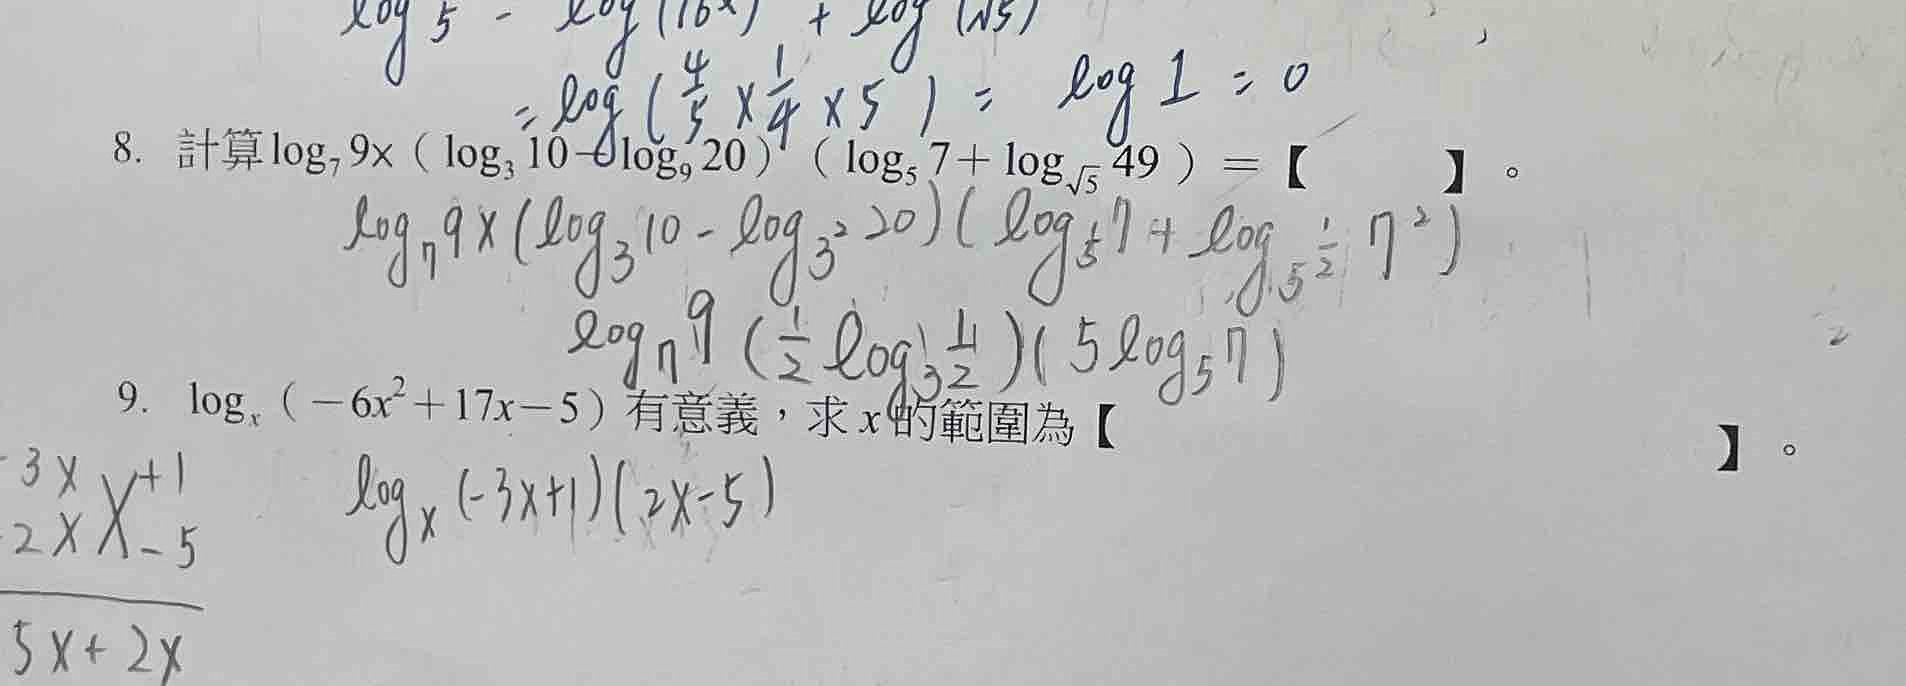 log 5 - log(16x) + log(√5)
= log(4/5 × 1/4 × 5) = log 1 = 0
8. 計算 log₇ 9×（log₃ 10－log₉ 20）（log₅ 7＋log_√5 49）＝【 】。
log₇ 9×(log₃ 10 - log₃² 20)(log₅ 7 + log_5^(1/2) 7²)
log₇ 9 (1/2 log₃ )(5 log₅ 7)
9. logₓ（－6x²＋17x－5）有意義，求 x 的範圍為【 】。
3x +1
logₓ (-3x+1)(2x-5)
2x -5
5x + 2x